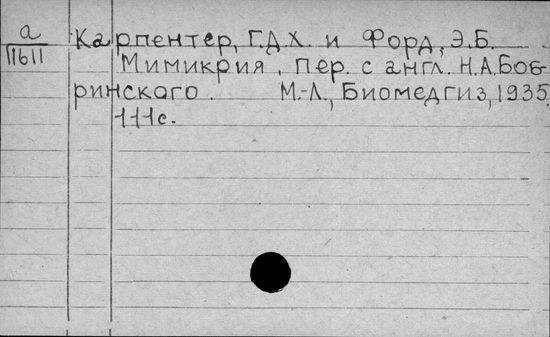 а
11611
Карпентер, Г.Д.Х. и Форд, Э.Б.
Мимикрия. Пер. с англ. Н.А.Боб-
ринского. М.-Л., Биомедгиз, 1935.
111с.